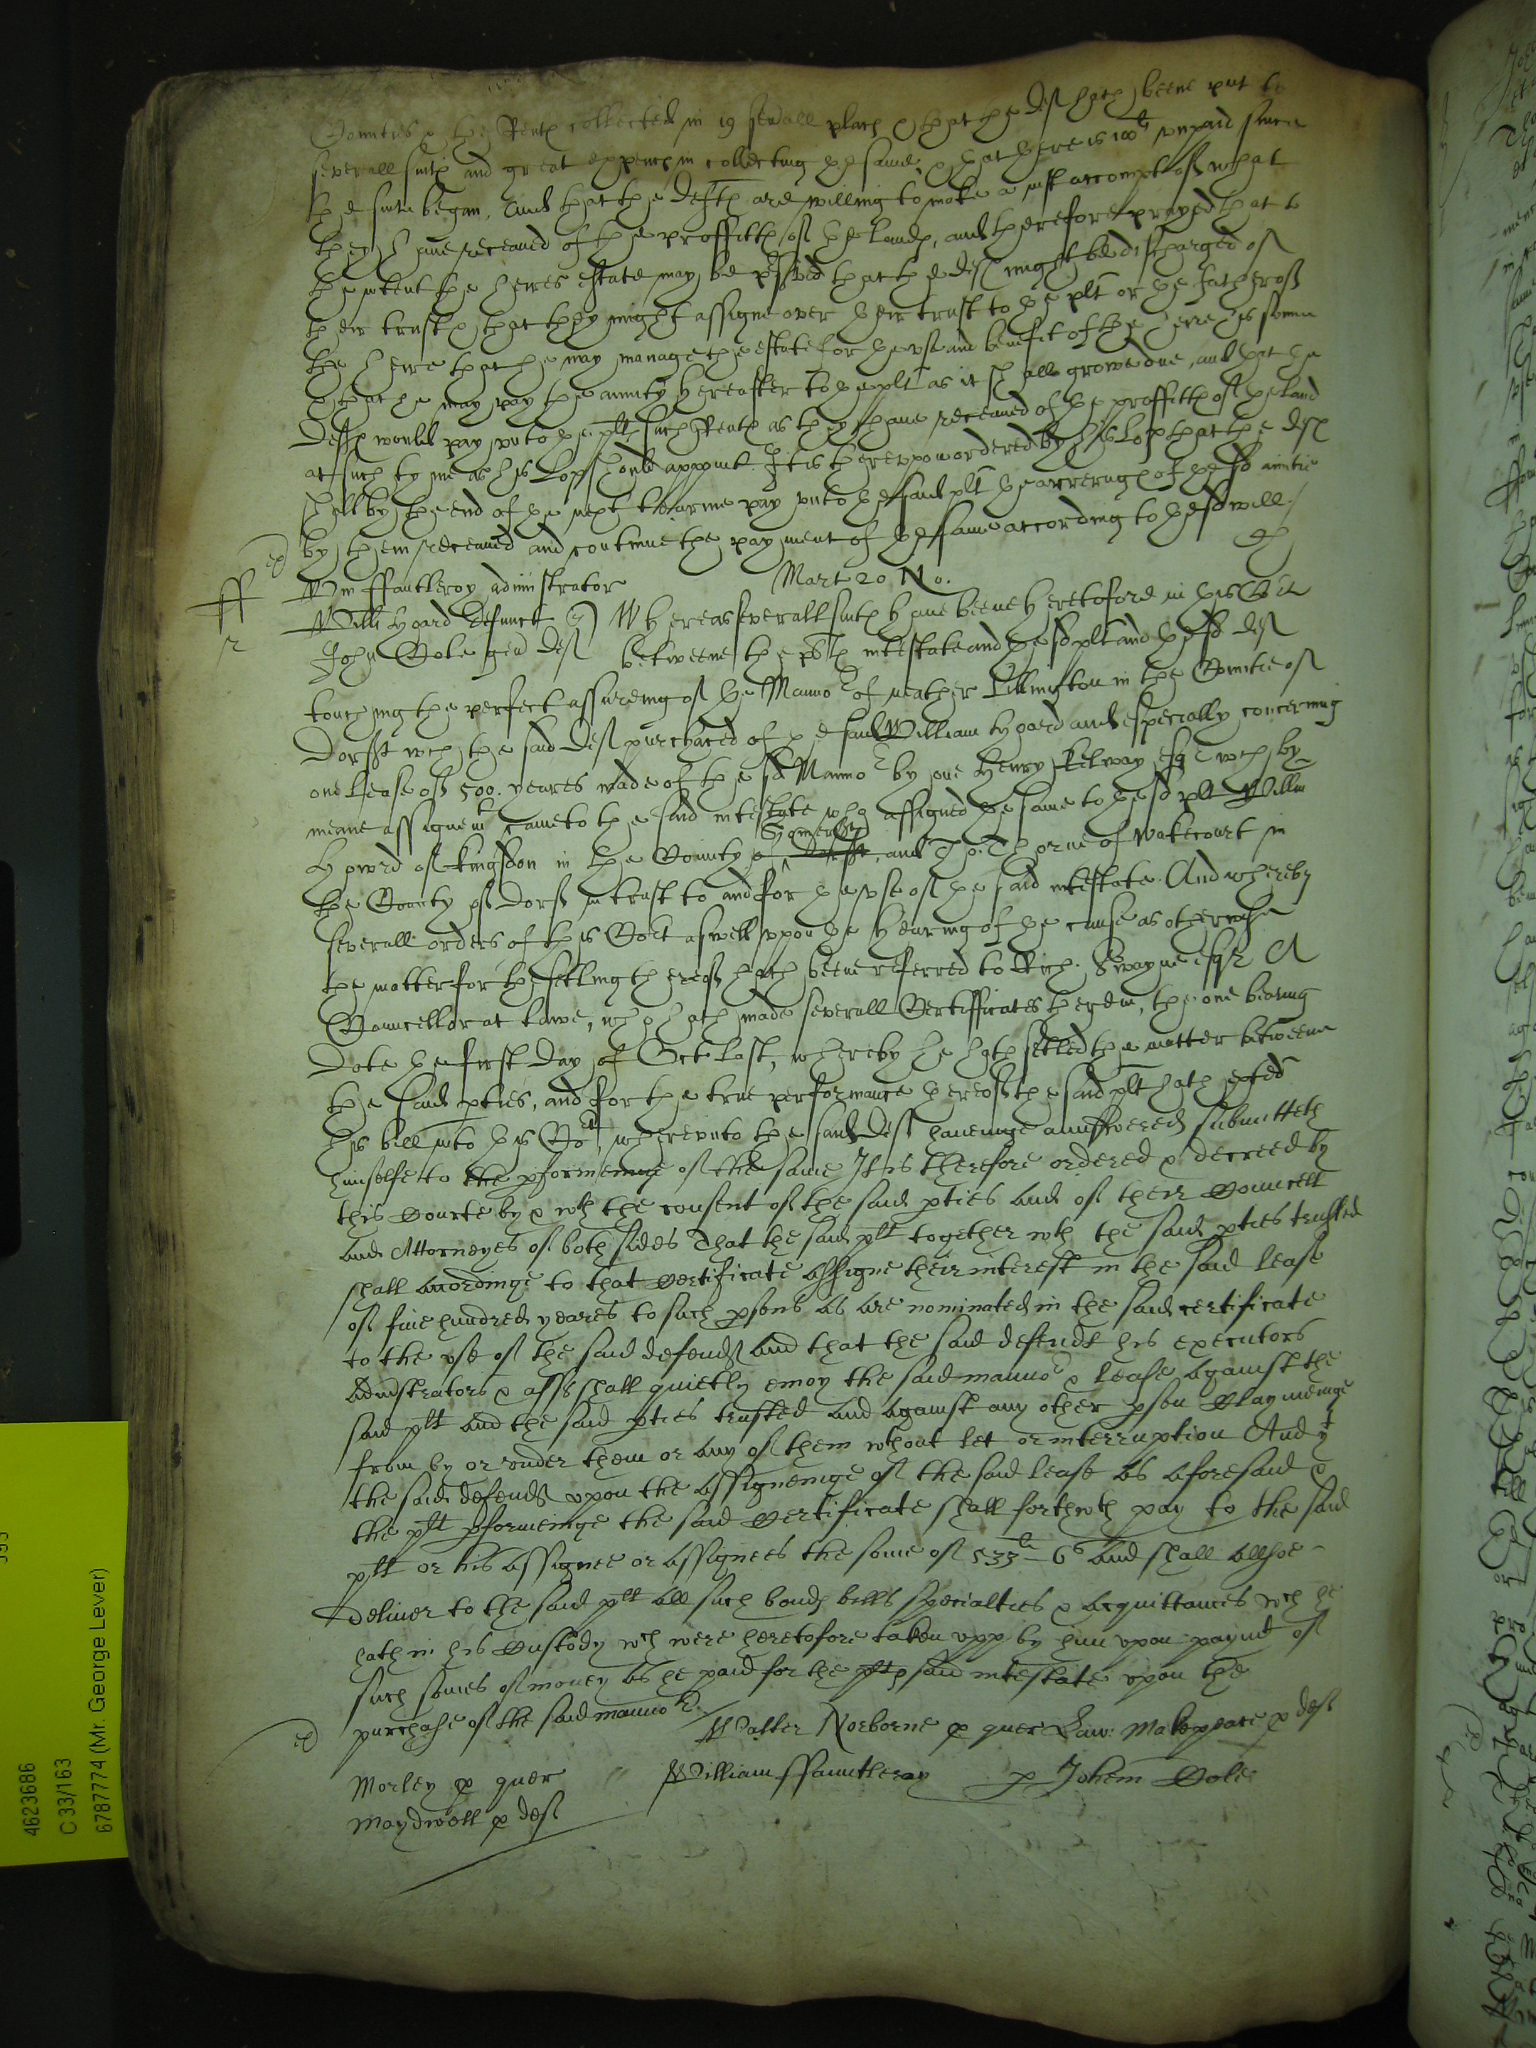 Counties & the Rents collected in 19 severall places & that the def hath beene put to
severall suits and great expences in collecting the same, & that there is 100l unpaid since
the suite began, And that the defts are willing to make a just accompt of what
they have receaved of the proffitts of the Lands, and therefore prayed that to
the intent the heires estate may be that the def might be discharged of
their trust & that they might assigne over their trust to the plt or the father of
the heire that he may manage the estate for the use and benefit of the heire his sonne
& that he may pay the annuity hereafter to the plt as it shall growe due, and that the
defts would pay unto the plt such Rents as they have receaved of the proffitts of the Land
at such tyme as his Lopp should appoint. It is thereupon ordered by his Lopp that the defts
shall by the end of the next tearme pay unto the said plt the arrerages of the sd annitie
by them receaved and continue the payment of the same according to the sd will./
Wm ffauntleroy administrator
Mart 20 No.
Willi hgard defunct Whereas severall suits have beene heretofore in this Court
John Cole gen def betweene the intestate and the sd plt and the sd def
touching the perfect assureing of the Manno of neather Lillington in the Countie of
Dorst wch the said def purchaced of the said William hgard and especially concerning
one Lease of 500. yeares made of the sd Manno by one Henry Kelway esq wch by
meane assignemt came to the said intestate who assigned the same to the sd plt Willm
of Kingsdon in the County of Dorst Somerst, and Tho: Thorne of Wakecourt in
the County of Dorst in trust to and for the use of the said intestate. And whereby
severall orders of this Cort aswell upon the hearing of the cause as otherwise
the matter for the setling thereof hath beene referred to Rich. Swayne esqr A
Councellor at Lawe, who hath made severall Certifficates therein, the one bearing
date the first day of Octo: last, whereby he hath setled the matter betweene
the said pties, and for the true performance thereof the said plt hath exhted
his bill into this Cort whereunto the said def haveinge aunswered submitteth
himselfe to the pformeinge of the same It is therefore ordered & decreed by
this Courte by & wth the consent of the said pties and of their Councell
and Attorneyes of both sides That the said plt together wth the said pties trusted
shall accordinge to that Certificate assigne their interest in the said Lease
of five hundred yeares to such psons as are nominated in the said certificate
to the use of the said defendt and that the said defendt his executors
Administrators & asss shall quietly enioy the said manno & lease against the
said plt and the said pties trusted and against any other pson Claymeinge
from by or under them or any of them wthout let or interruption And yt
the said defendt upon the assigneinge of the said lease as aforesaid &
the plt pformeinge the said Certificate shall forthwth pay to the said
plt or his assignee or assignees the some of 533li - 6s and shall allsoe
deliver to the said plt all such bonds bills specialties & acquittances wch he
hath in his Custody wch were heretofore taken upp by him upon paymt of
such somes of money as he paid for the plts said intestate upon the
purchase of the said mannor.
Walter Norborne p quer Law: Makepeace p def
Morley p quer William ffauntleroy p Johem Cole
Maydwell p def
4623686
C 33/163
6787774 (Mr. George Lever)